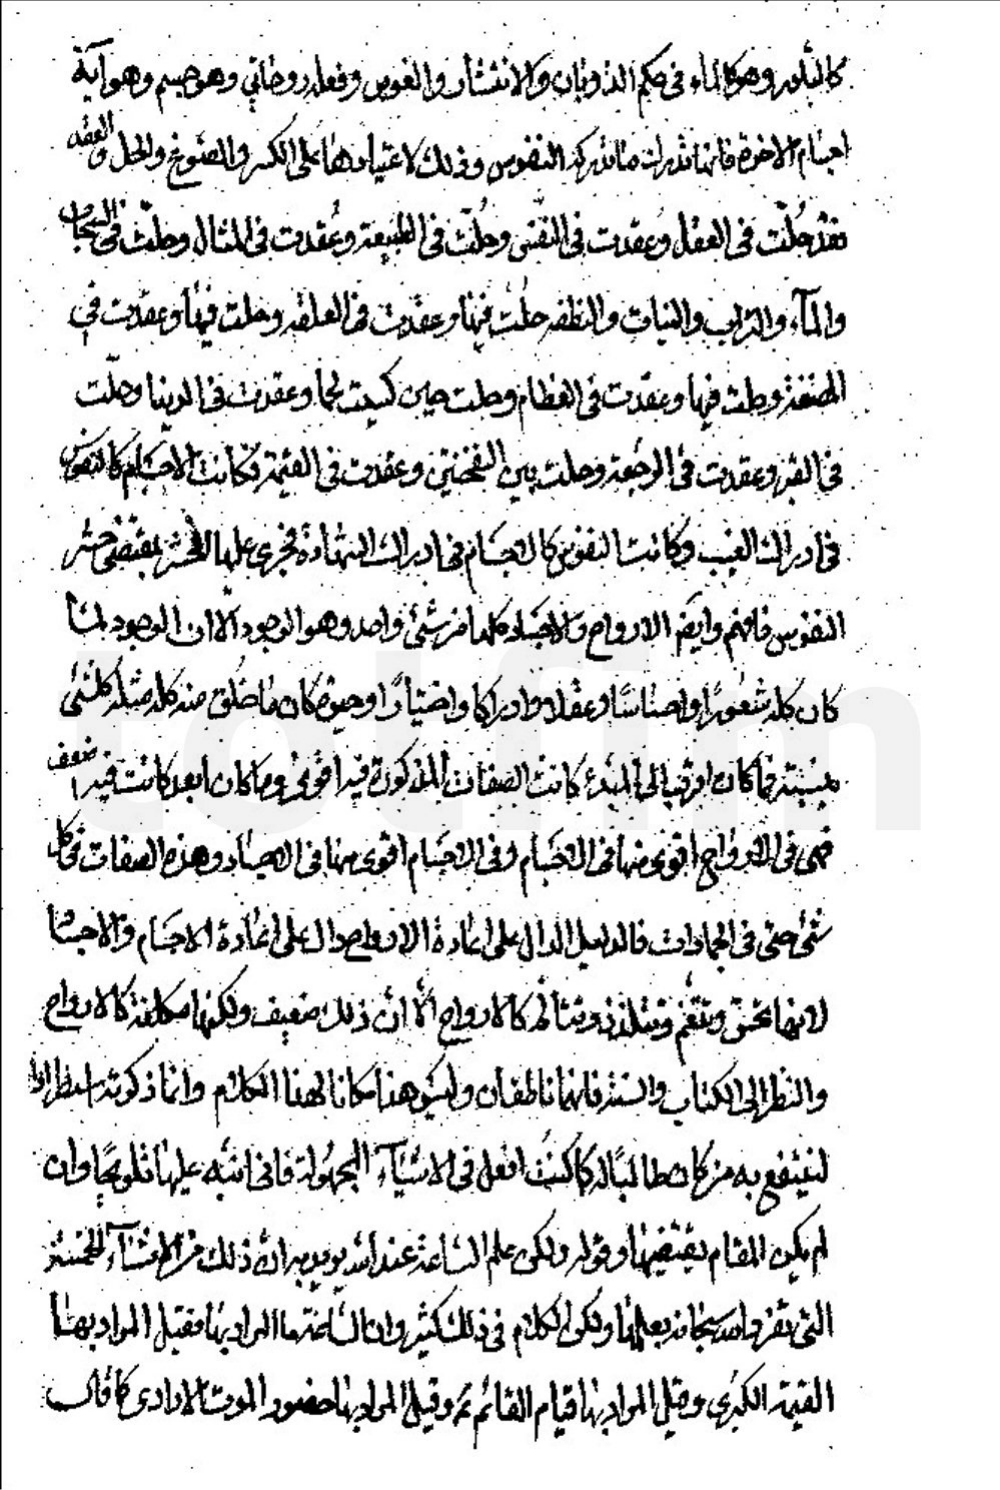 كالبلور وهو كالماء فى حكم الذوبان والانتشار والغوص وفعله روحانى وهو جسم وهو آية
اجسام الاخرة فانها تدرك ما تدركه النفوس وذلك لاعتيادها على الكسر والصوغ والحل والعقد
فقد حلّت فى العقل وعقدت فى النفس وحلّت فى الطبيعة وعقدت فى المثال وحلّت فى السحاب
والمآء والتراب والنبات والنطفة حلت فيها وعقدت فى العلقة وحلت فيها وعقدت فى
المضغة وحلت فيها وعقدت فى العظام وحلت حين كسيت لحما وعقدت فى الدنيا وحلّت
فى القبر وعقدت فى الرجعة وحلت بين النفختين وعقدت فى القيمة فكانت الاجسام كالنفوس
فى ادراك الغيب وكانت النفوس كالاجسام فى ادراك الشهادة فجرى عليها الحشر بمقتضى حشر
النفوس فافهم وايضا الارواح والاجساد كلها من شئ واحد وهو الوجود الا ان الوجود لما
كان كله شعورا واحساسا وعقلا وادراكا واختيارا وحيوة كان ما خلق منه كله مثله كل شئ
بنسبته فما كان اقرب الى المبدء كانت الصفات المذكورة فيه اقوى وما كان ابعد كانت فيه اضعف
فهى فى الارواح اقوى منها فى الاجسام وفى الاجسام اقوى منها فى الاجساد وهذه الصفات فى كل
شئ حتى فى الجمادات فالدليل الدال على اعادة الارواح دال على اعادة الاجسام والاجساد
لانها تحس وتتنعم وتتلذذ وتتألم كالارواح الّا ان ذلك ضعيف ولكنها مكلفة كالارواح
والنظر الى الكتاب والسنة فانهما ناطقان وليس هذا مكانا لهذا الكلام وانما ذكرته استطرادا
لينتفع به من كان طالبا له كما كنت افعل فى الاشيآء المجهولة فانى انبه عليها تلويحا وان
لم يكن المقام يقتضيها وقوله ولكن علم الساعة عند الله يريد به ان ذلك من الاشيآء الخمسة
التى تفرد الله سبحانه بعلمها ولكن الكلام فى ذلك كثير وان الساعة ما المراد بها فقيل المراد بها
القيمة الكبرى وقيل المراد بها قيام القائم ع وقيل المراد بها حضور الموت الارادى كما قال
totfim